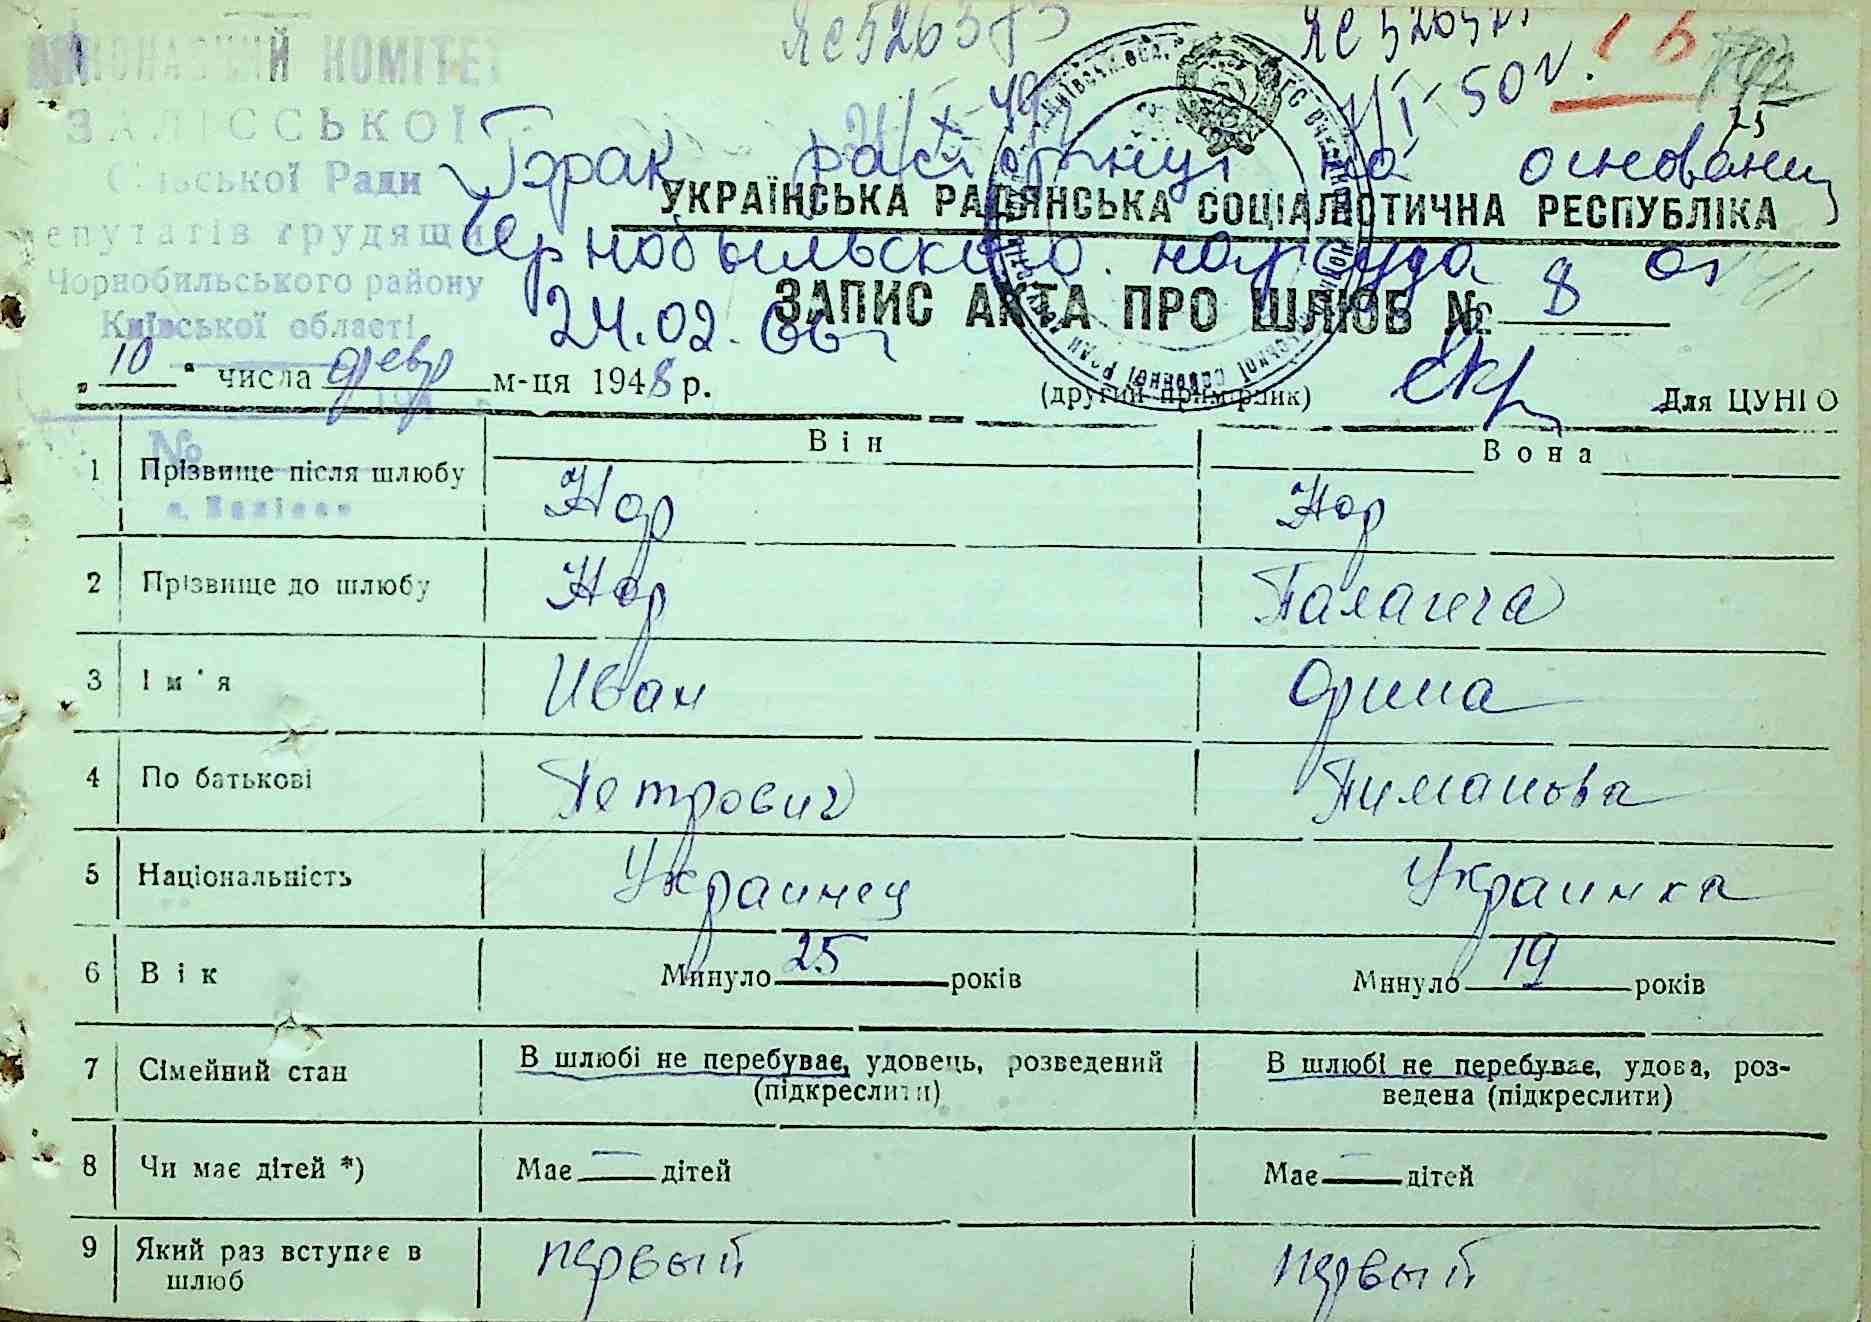 ЯС 5265
ВИКОНАВЧИЙ КОМІТЕТ
ЗАЛІССЬКОЇ
Сільської Ради
депутатів трудящих
Чорнобильського району
Київської області
№
Брак расторгнут на основании
УКРАЇНСЬКА РАДЯНСЬКА СОЦІАЛІСТИЧНА РЕСПУБЛІКА
Чернобыльского нарсуда от
24.02.66 г
ЗАПИС АКТА ПРО ШЛЮБ № 8
„10“ числа февр м-ця 1948 р. (другий примірник) Для ЦУНГО
Він Вона
1 Прізвище після шлюбу Нор Нор
2 Прізвище до шлюбу Нор
3 Ім'я Иван Орина
4 По батькові Петрович Тимановва
5 Національність Украинец Украинка
6 Вік Минуло 25 років Минуло 19 років
7 Сімейний стан В шлюбі не перебуває, удовець, розведений В шлюбі не перебуває, удова, роз-
(підкреслити) ведена (підкреслити)
8 Чи має дітей *) Має — дітей Має — дітей
9 Який раз вступає в первый первый
шлюб